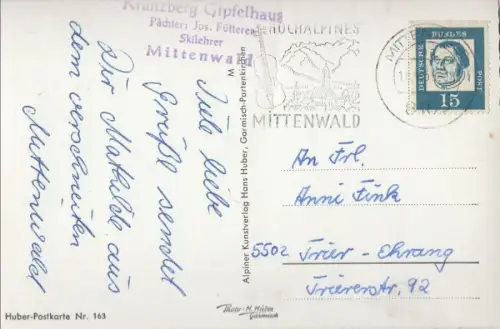 Kranzberg Gipfelhaus
Pächter: Jos. Fütterer
Skilehrer
Mittenwald
HOCHALPINES
MITTENWALD
DEUTSCHE BUNDESPOST
15
Viele liebe
Grüße sendet
Dir Mathilde aus
dem verschneiten
Mittenwald
Alpiner Kunstverlag Hans Huber, Garmisch-Partenkirchen
An Frl.
Anni Fink
5502 Trier-Ehrang
Triererstr. 92
Huber-Postkarte Nr. 163
Photo: H. Huber
Garmisch